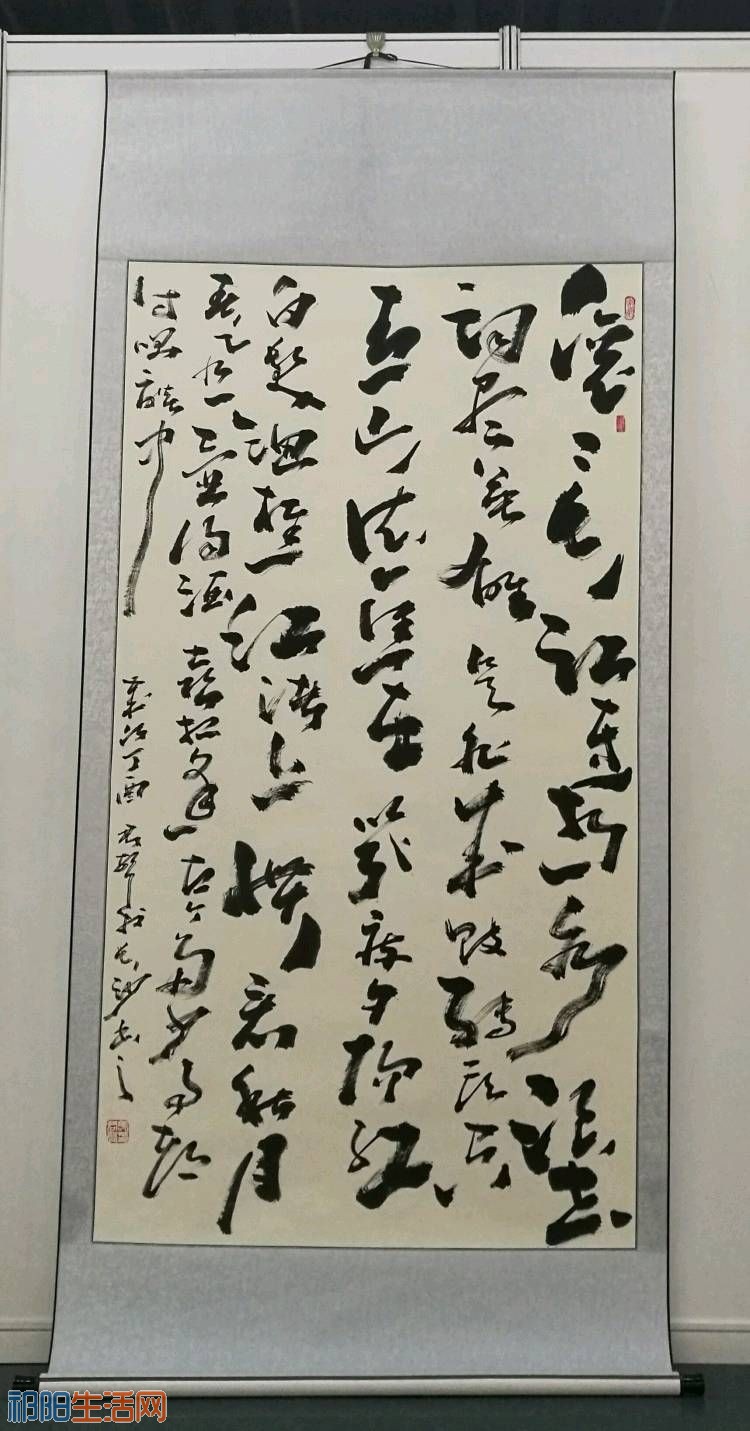 滚〻长江东逝水浪花
淘尽英雄是非成败转头空
青山依旧在几度夕阳红
白发渔樵江渚上惯看秋月
春风一壶浊酒喜相逢古今多少事都
付笑谈中
岁次丁酉于长沙书之
祁阳生活网